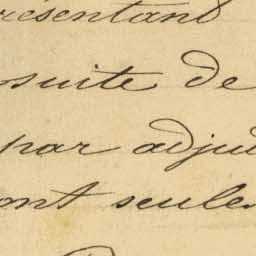 résentant
suite de
par adjud
ont seule